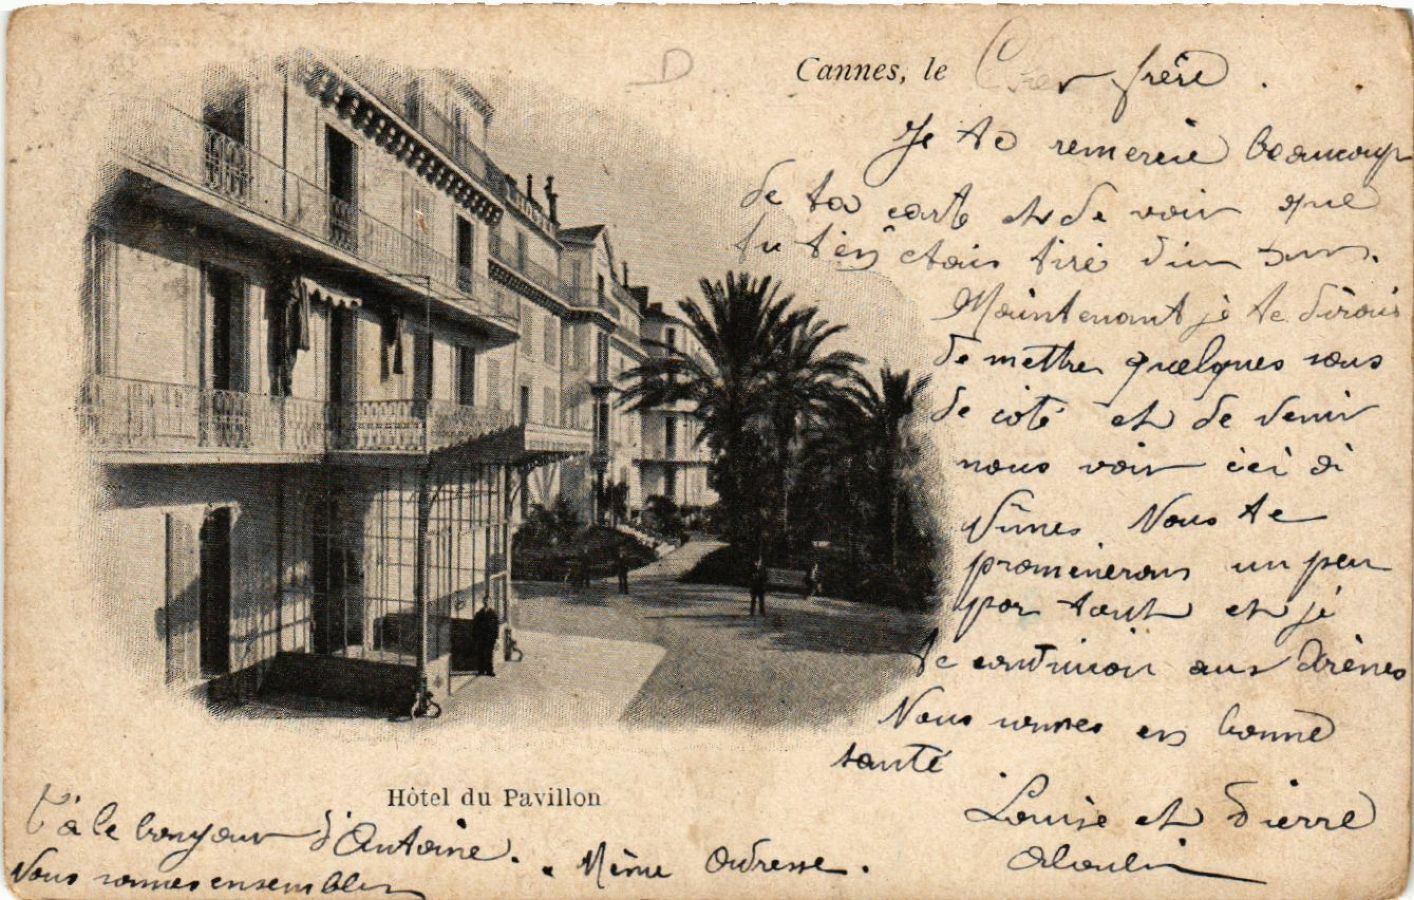 D
Cannes, le Cher frère.
Je te remercie beaucoup
de ta carte et de voir que
tu t'en étais tiré d'un sous.
Maintenant je te dirais
de mettre quelques sous
de coté et de venir
nous voir ici à
Nîmes Nous te
promènerons un peu
par tout et je
te conduirai aux Arènes
Nous sommes en bonne
santé
Louise et Pierre
Hôtel du Pavillon
T'a le bonjour d'Antoine.
Nous sommes ensembles
Même Adresse.